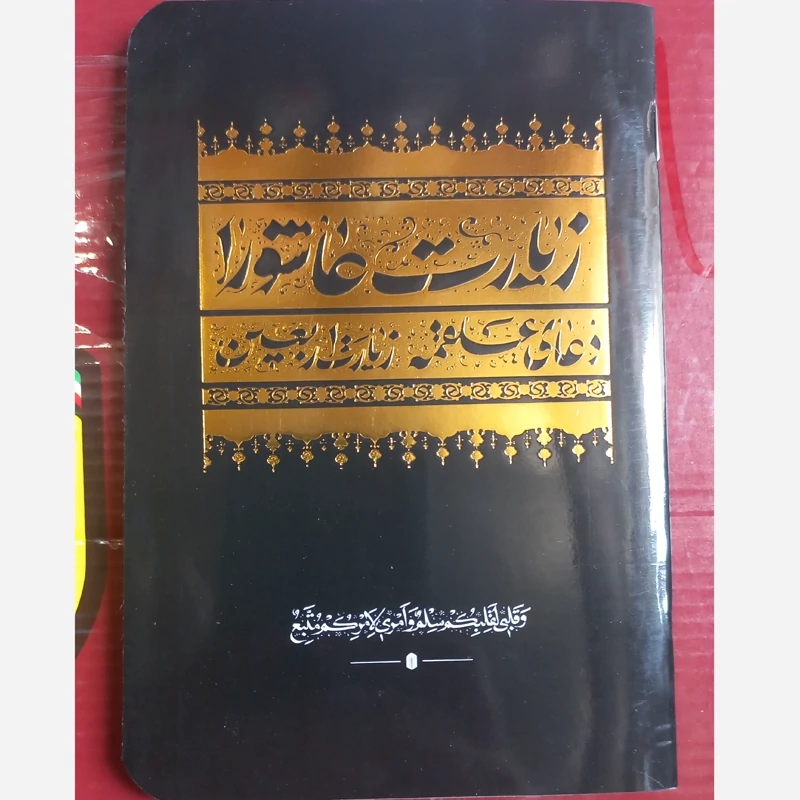 زیارت عاشورا
دعای علقمه زیارت اربعین
وَ قَلْبی لِقَلْبِکُمْ سِلْمٌ وَ اَمْری لِاَمْرِکُمْ مُتَّبِعٌ